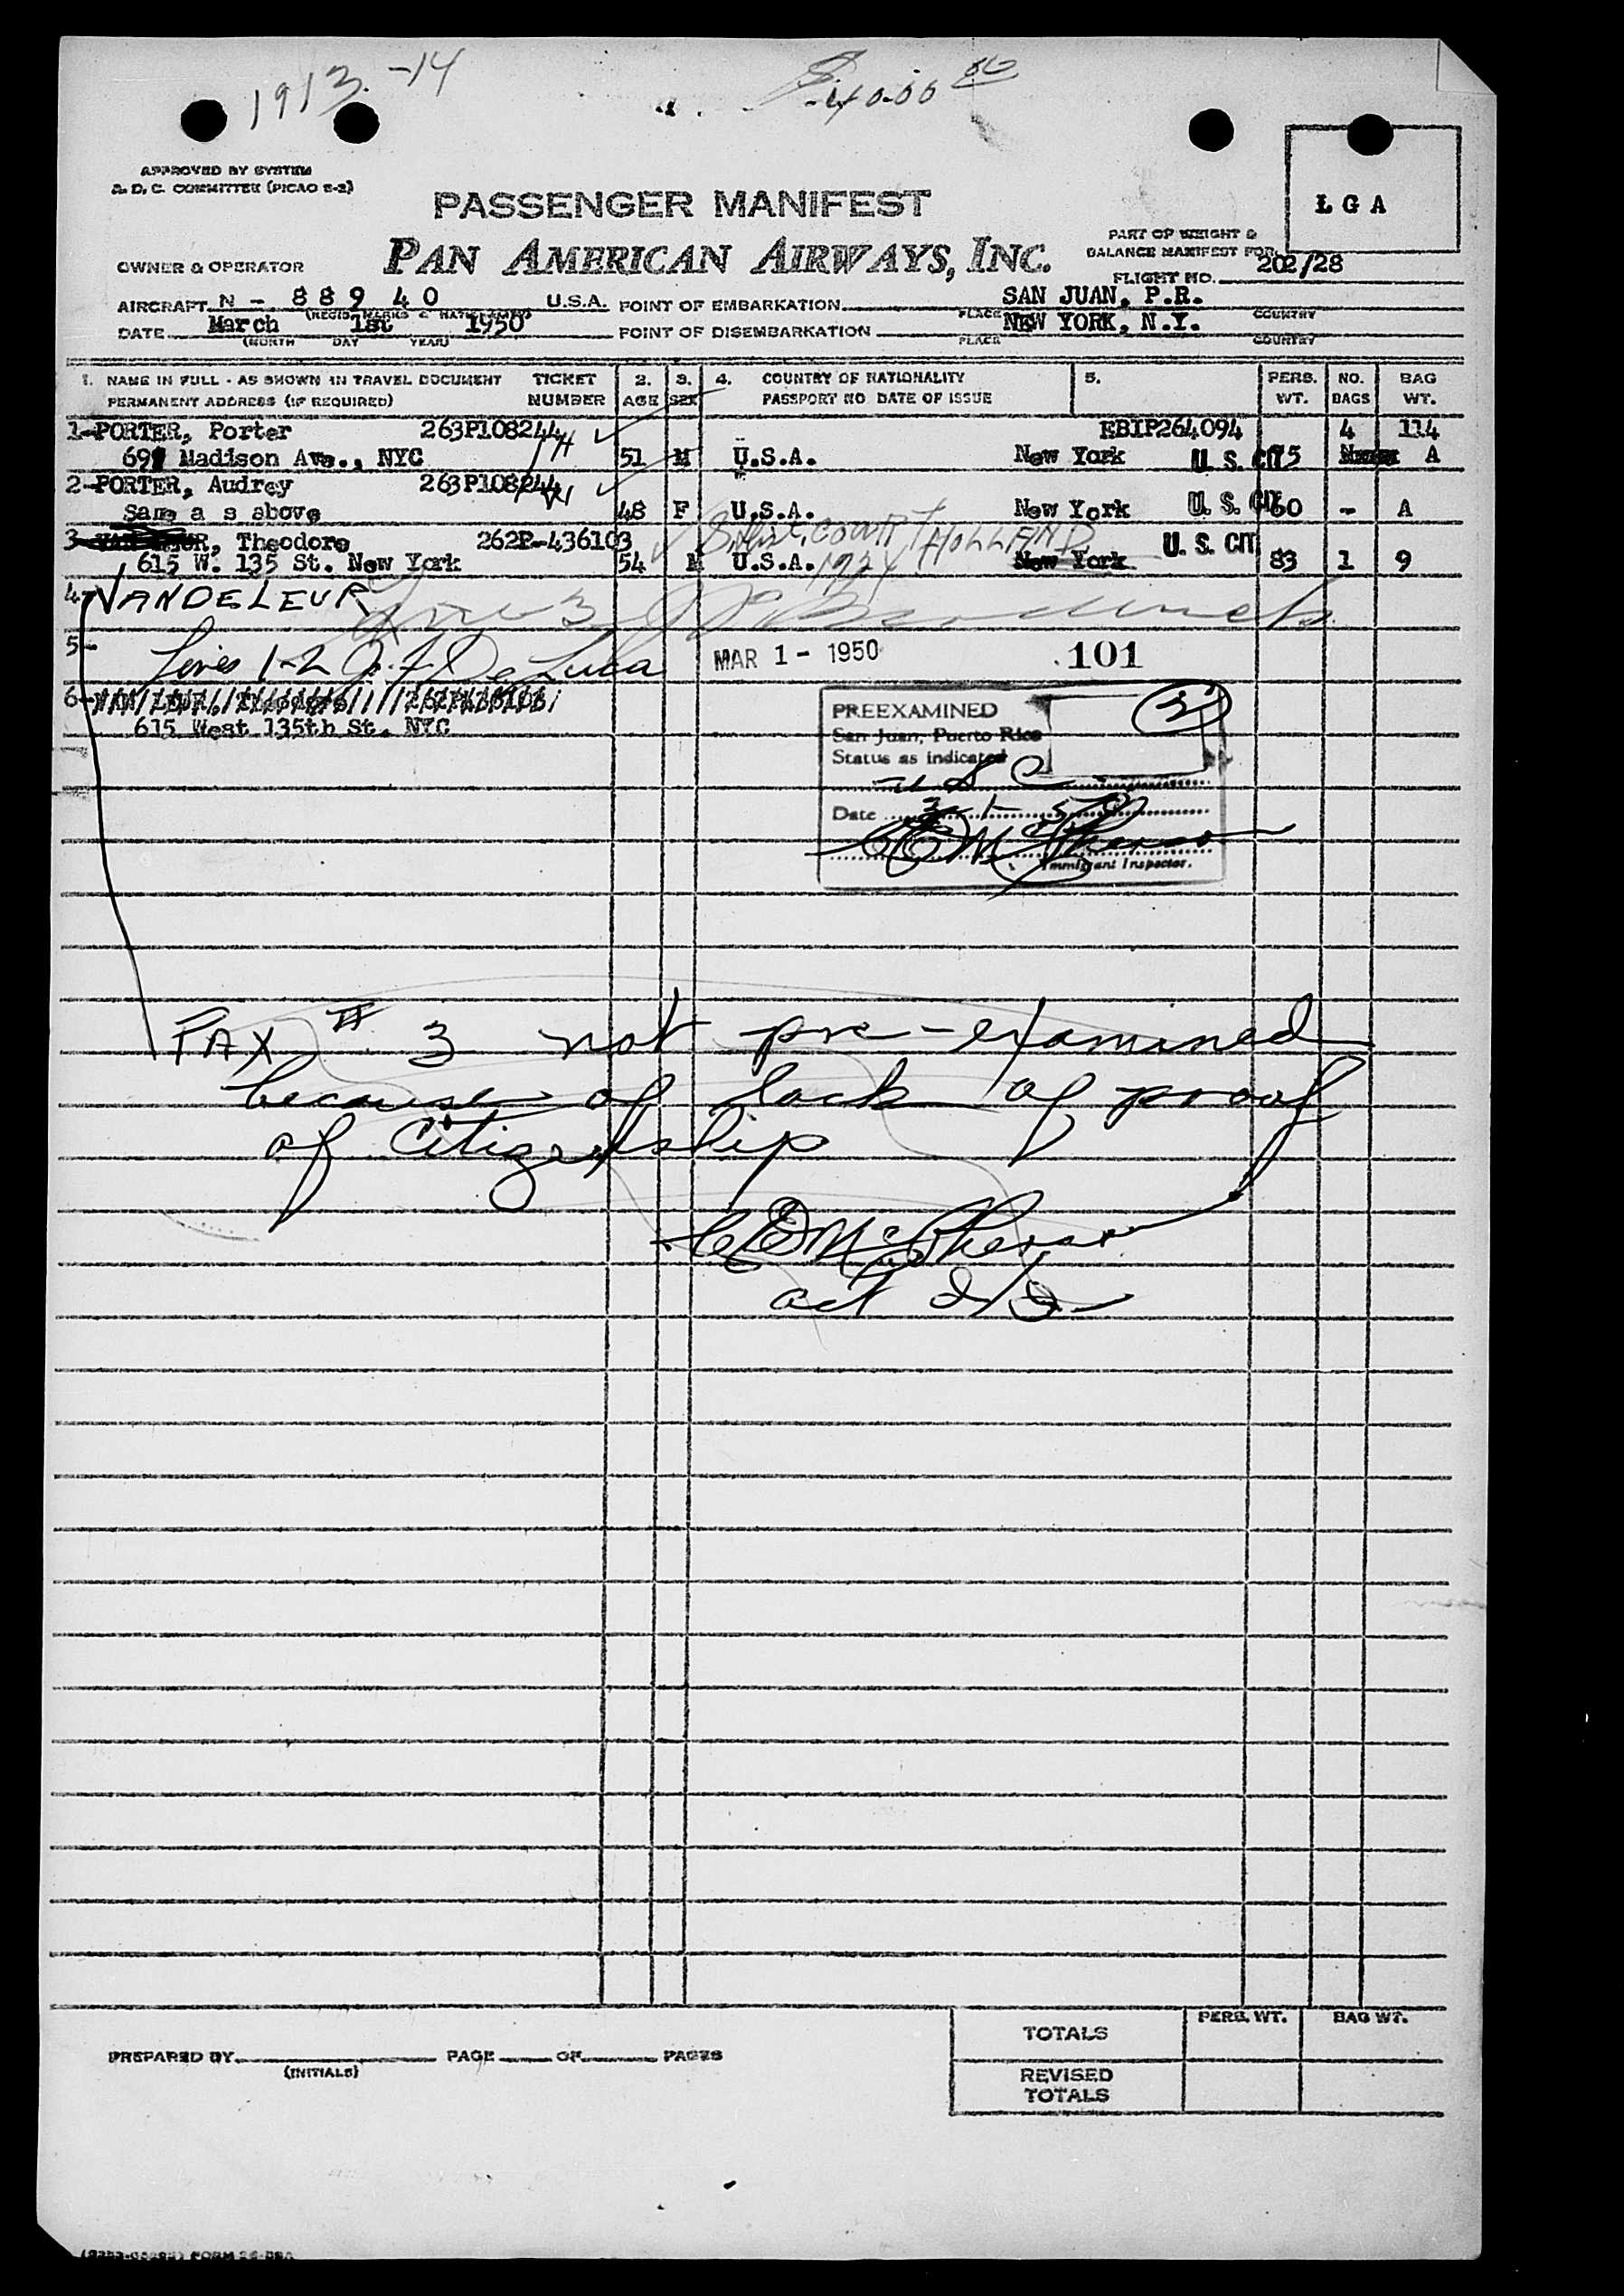 1913-14
APPROVED BY SYSTEM
A. D. C. COMMITTEE (PICAO E-2)
PASSENGER MANIFEST
L G A
PAN AMERICAN AIRWAYS, INC.
PART OF WEIGHT &
BALANCE MANIFEST FOR
OWNER & OPERATOR
FLIGHT NO. 202/28
AIRCRAFT N - 88940 U.S.A. POINT OF EMBARKATION SAN JUAN, P.R.
PLACE COUNTRY
DATE March 1st 1950 POINT OF DISEMBARKATION NEW YORK, N.Y.
(MONTH DAY YEAR) PLACE COUNTRY
1. NAME IN FULL - AS SHOWN IN TRAVEL DOCUMENT TICKET 2. 3. 4. COUNTRY OF NATIONALITY 5. PERS. NO. BAG
PERMANENT ADDRESS (IF REQUIRED) NUMBER AGE SEX PASSPORT NO DATE OF ISSUE WT. BAGS WT.
1-PORTER, Porter 263P108244 EBIP264094 4 114
Madison Ave., NYC 51 M U.S.A. New York U. S. CIT 75 A
2-PORTER, Audrey 263P108244
Same a s above 48 F U.S.A. New York U. S. CIT 60 - A
COURT HOLLAND
3- Theodore 262P-436103 U. S. CIT
615 W. 135 St. New York 54 M U.S.A. 1924 New York 83 1 9
4- VANDELEUR
5- Lines 1-2 J. F. DeLuca MAR 1 - 1950 101
6-
615 West 135th St. NYC
PREEXAMINED
San Juan, Puerto Rico
Status as indicated
U S C
3
Date 3-1-50
CEMcPherson
Immigrant Inspector.
PAX # 3 not pre-examined
because of lack of proof
of citizenship
CEMcPherson
PREPARED BY PAGE OF PAGES
(INITIALS)
TOTALS PERS. WT. BAG WT.
REVISED
TOTALS